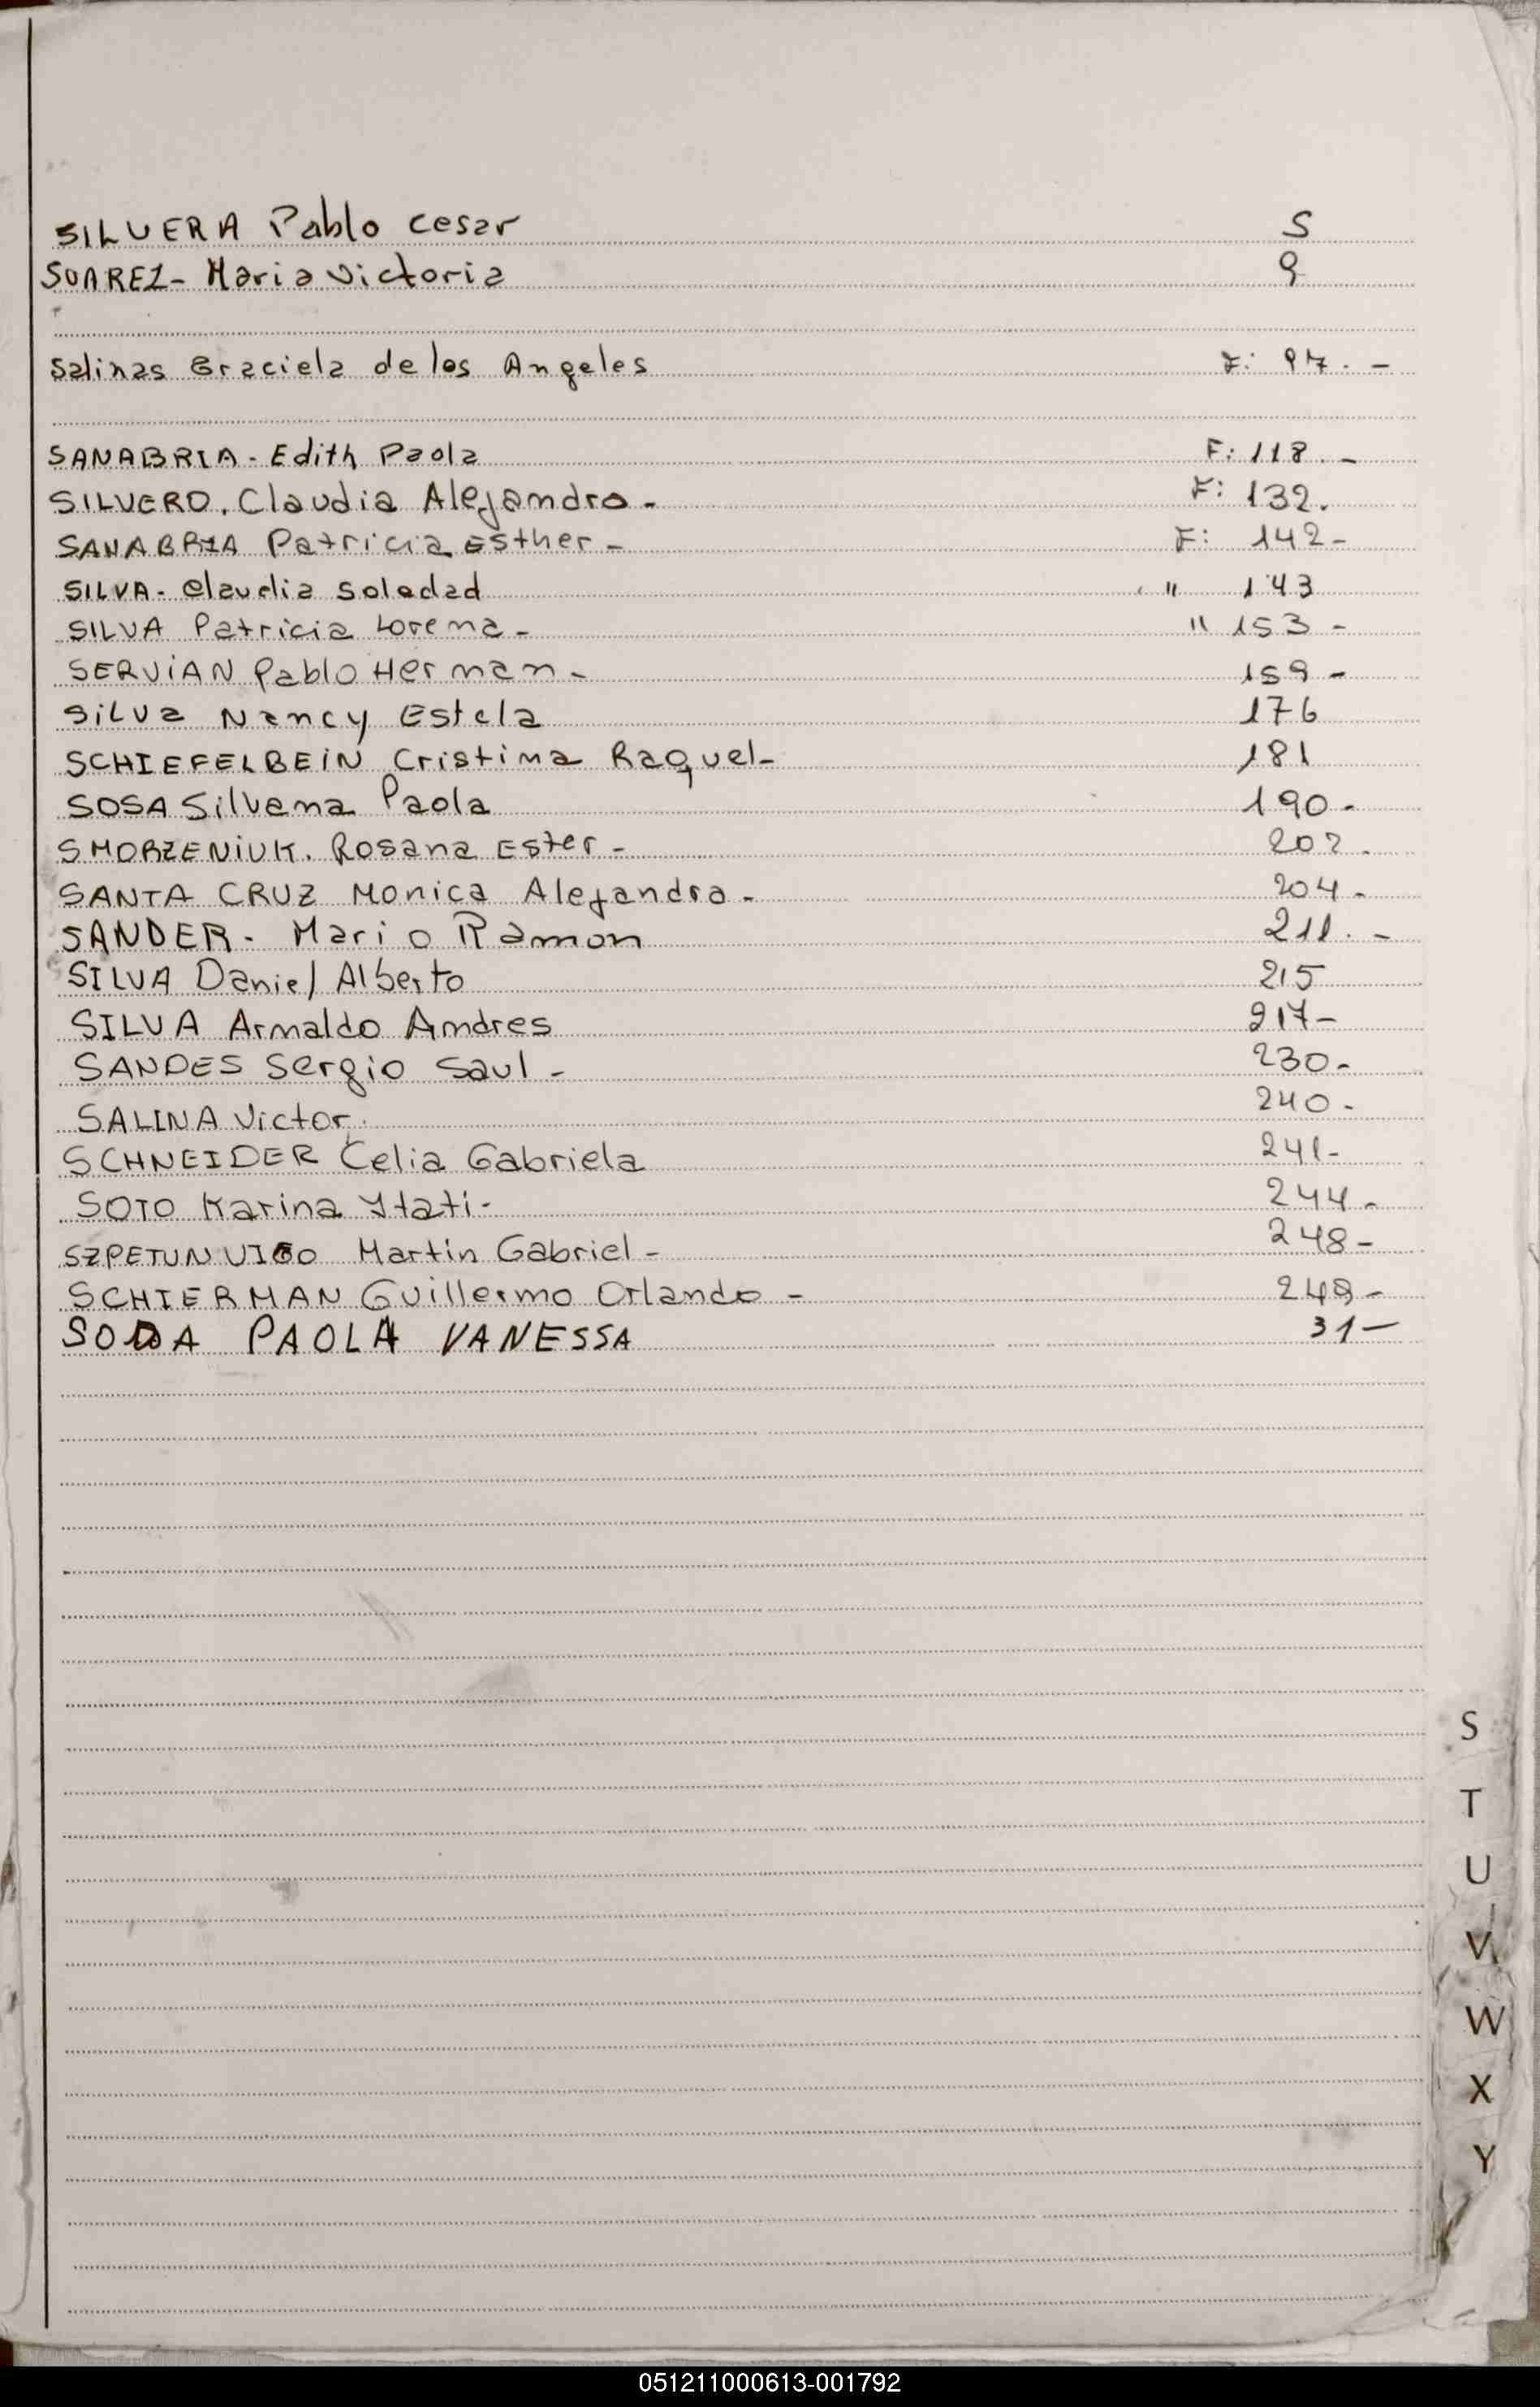 SILVERA Pablo cesar 5
SUAREZ- Maria Victoria 9
Salinas Graciela de los Angeles F: 97. -
SANABRIA - Edith Paola F: 118. -
SILVERO. Claudia Alejandra - F: 132.
SANABRIA Patricia Esther - F: 142 -
SILVA - Claudia Soledad " 143
SILVA Patricia Lorena - " 153 -
SERViAN Pablo Hernan - 159 -
SiLVa Nancy Estela 176
SCHIEFELBEiN Cristina Raquel - 181
SOSA Silvana Paola 190 -
SMORZENiUK. Rosana Ester - 202.
SANTA CRUZ Monica Alejandra - 204 -
SANDER - Mario Ramon 211. -
SILVA Daniel Alberto 215
SILVA Arnaldo Andres 217 -
SANDES Sergio Saul - 230 -
SALINA Victor. 240 -
SCHNEIDER Celia Gabriela 241 -
SOTO Karina Ytati - 244 -
Martin Gabriel - 248 -
SCHIERMAN Guillermo Orlando - 249 -
PAOLA VANESSA 31 -
S
T
U
V
W
X
Y
051211000613-001792